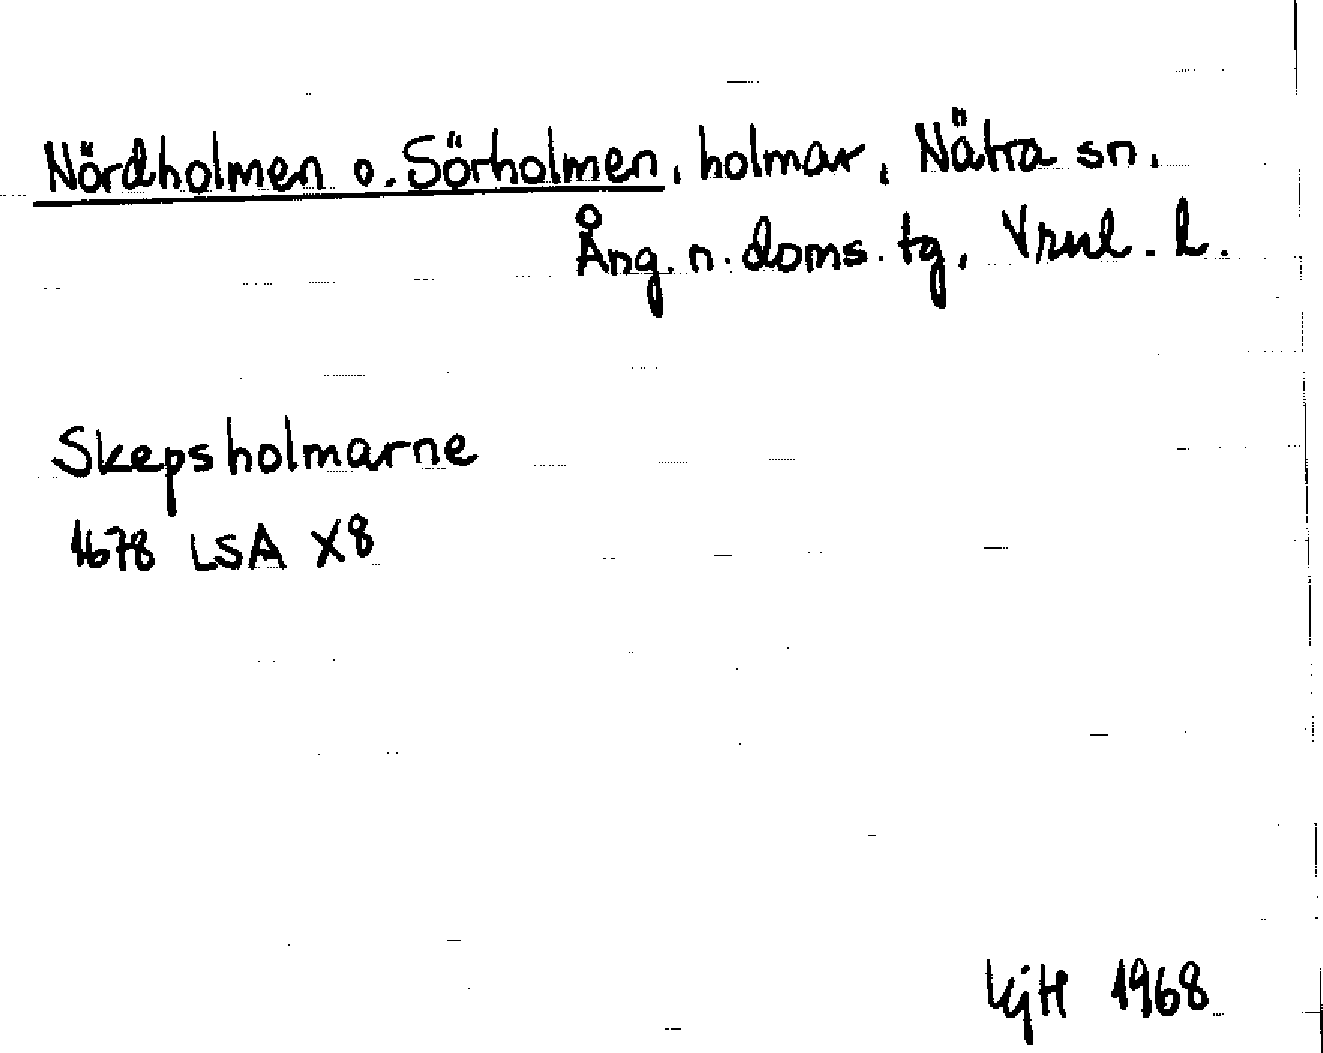 Nördholmen o. Sörholmen, holmar, Nätra sn.
Ång. n. doms. tg, Vrnl. l.
Skepsholmarne
1678 LSA X8
KjH 1968